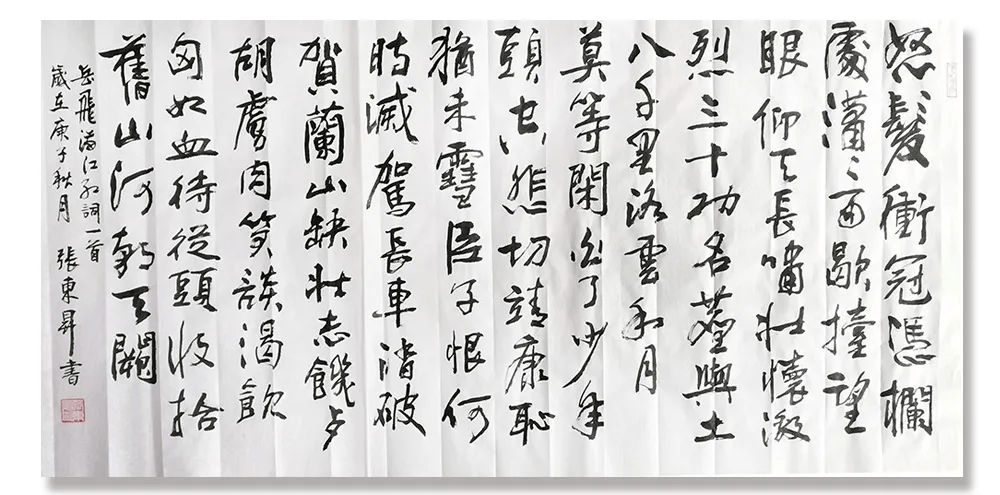 怒髮衝冠憑欄
處瀟々雨歇擡望
眼仰天長嘯壯懷激
烈三十功名塵與土
八千里路雲和月
莫等閑白了少年
頭空悲切靖康恥
猶未雪臣子恨何
時滅駕長車踏破
賀蘭山缺壯志饑歺
胡虜肉笑談渴飲
匈奴血待從頭收拾
舊山河朝天闕
岳飛滿江紅詞一首
歲在庚子秋月 張東昇書